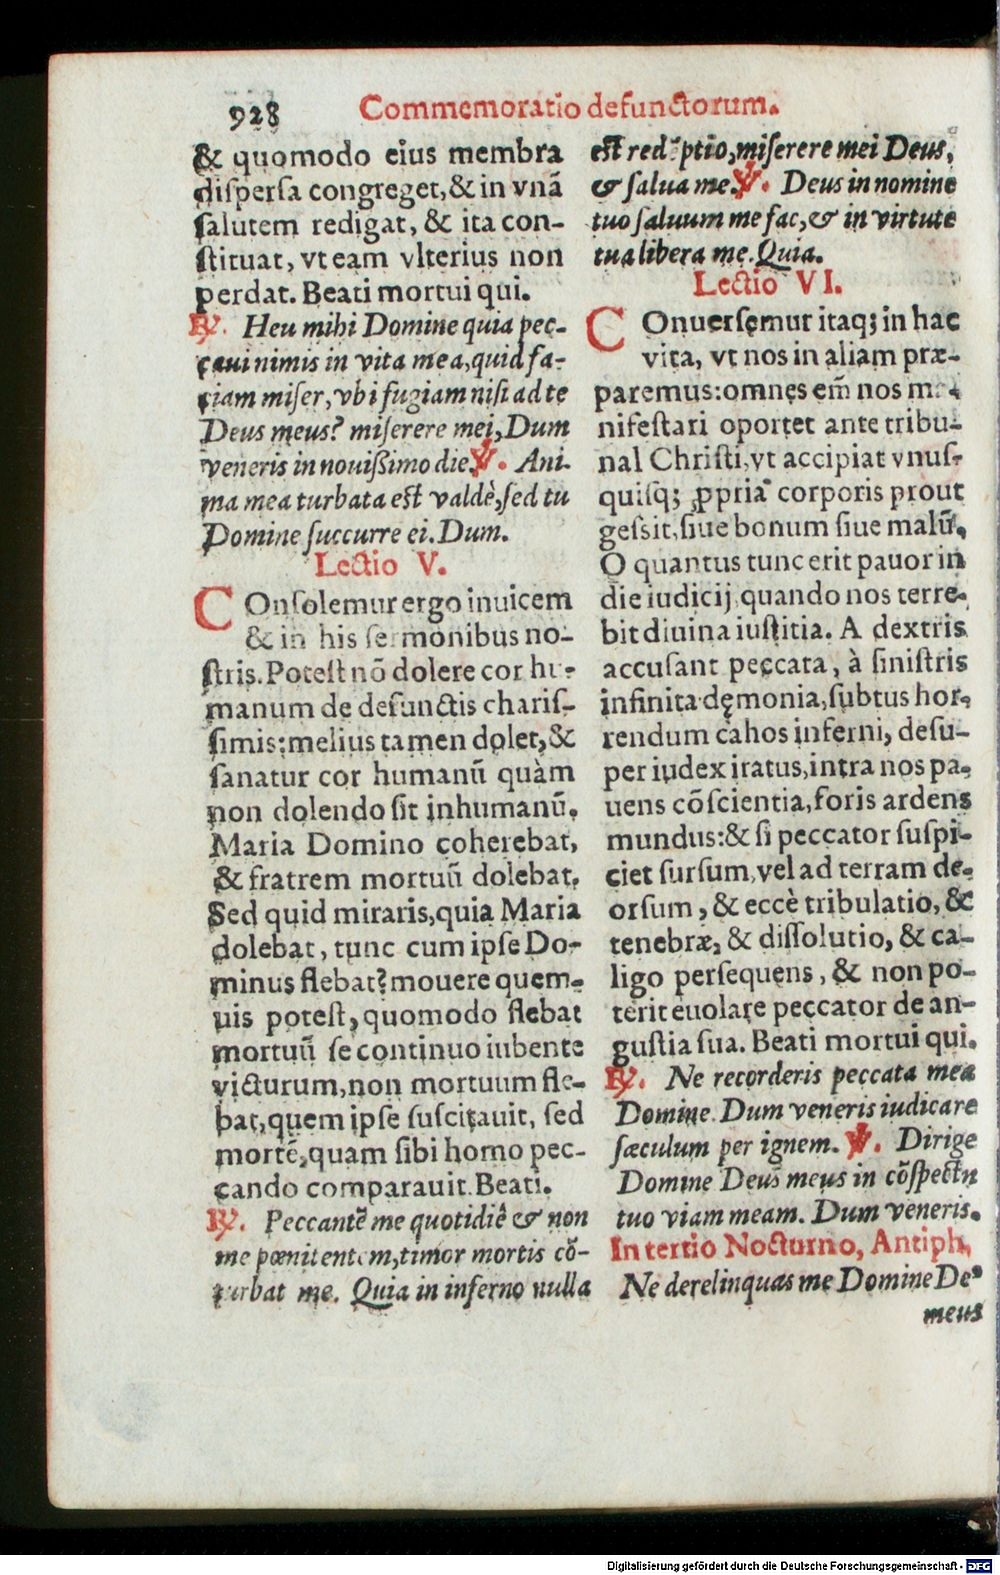 928 Commemoratio defunctorum.
& quomodo eius membra
dispersa congreget, & in vnã
salutem redigat, & ita con-
stituat, vt eam vlterius non
perdat. Beati mortui qui.
℟. Heu mihi Domine quia pec-
caui nimis in vita mea, quid fa-
ciam miser, vbi fugiam nisi ad te
Deus meus? miserere mei, Dum
veneris in nouißimo die. ℣. Ani-
ma mea turbata est valdè, sed tu
Domine succurre ei. Dum.
Lectio V.
COnsolemur ergo inuicem
& in his sermonibus no-
stris. Potest nõ dolere cor hu-
manum de defunctis charis-
simis: melius tamen dolet, &
sanatur cor humanũ quàm
non dolendo sit inhumanũ.
Maria Domino coherebat,
& fratrem mortuũ dolebat.
Sed quid miraris, quia Maria
dolebat, tunc cum ipse Do-
minus flebat? mouere quem-
uis potest, quomodo flebat
mortuũ se continuo iubente
victurum, non mortuum fle-
bat, quem ipse suscitauit, sed
mortẽ, quam sibi homo pec-
cando comparauit. Beati.
℟. Peccantẽ me quotidiè & non
me pœnitentem, timor mortis cõ-
turbat me. Quia in inferno nulla
est redẽptio, miserere mei Deus,
& salua me. ℣. Deus in nomine
tuo saluum me fac, & in virtute
tua libera me. Quia.
Lectio VI.
COnuersęmur itaq; in hac
vita, vt nos in aliam præ-
paremus: omnęs em̃ nos ma-
nifestari oportet ante tribu-
nal Christi, vt accipiat vnus-
quisq; ꝓpria corporis prout
gessit, siue bonum siue malũ.
O quantus tunc erit pauor in
die iudicij quando nos terre-
bit diuina iustitia. A dextris
accusant peccata, à sinistris
infinita dęmonia, subtus hor-
rendum cahos inferni, desu-
per iudex iratus, intra nos pa-
uens cõscientia, foris ardens
mundus: & si peccator suspi-
ciet sursum, vel ad terram de-
orsum, & eccè tribulatio, &
tenebræ, & dissolutio, & ca-
ligo persequens, & non po-
terit euolare peccator de an-
gustia sua. Beati mortui qui.
℟. Ne recorderis peccata mea
Domine. Dum veneris iudicare
sæculum per ignem. ℣. Dirige
Domine Deus meus in cõspectu
tuo viam meam. Dum veneris.
In tertio Nocturno, Antiph.
Ne derelinquas me Domine De⁹
meus
Digitalisierung gefördert durch die Deutsche Forschungsgemeinschaft - DFG